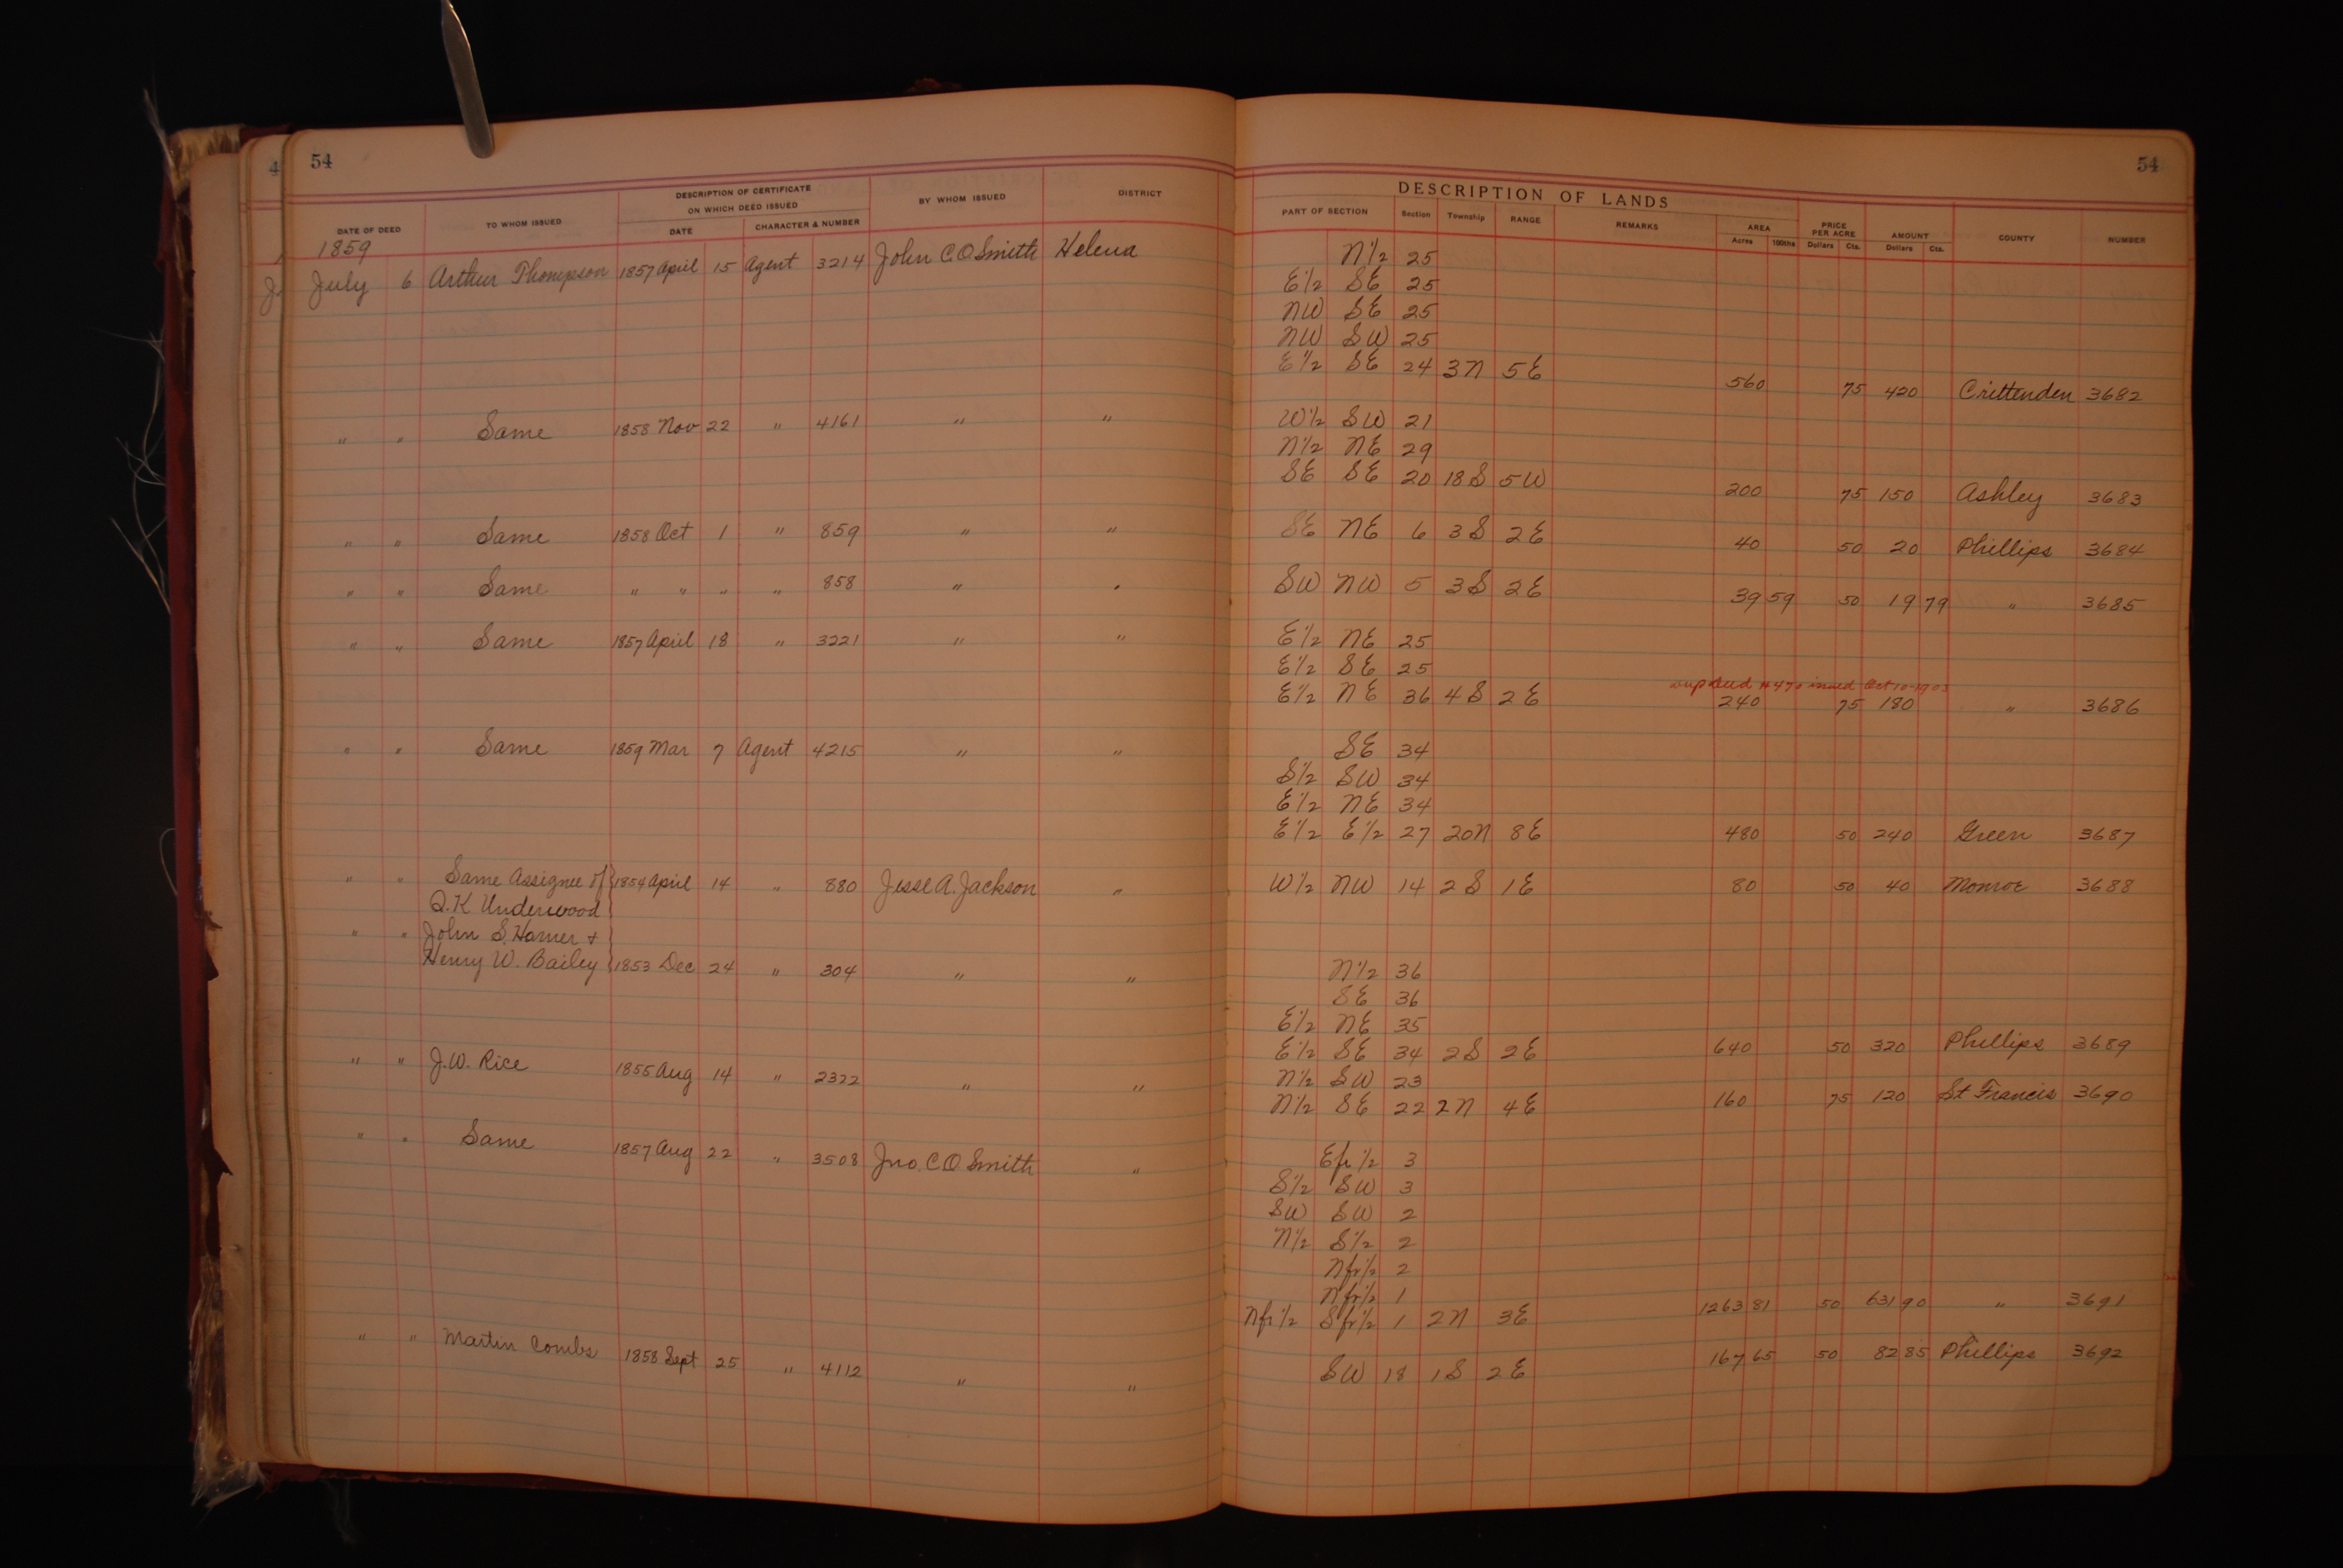 4 54 54
DESCRIPTION OF CERTIFICATE
ON WHICH DEED ISSUED
DATE OF DEED TO WHOM ISSUED DATE CHARACTER & NUMBER BY WHOM ISSUED DISTRICT
DESCRIPTION OF LANDS
PART OF SECTION Section Township RANGE REMARKS AREA PRICE PER ACRE AMOUNT COUNTY NUMBER
Acres 100ths Dollars Cts. Dollars Cts.
1859
July 6 Arthur Thompson 1857 April 15 Agent 3214 John C.O. Smith Helena N½ 25
E½ SE 25
NW SE 25
NW SW 25
E½ SE 24 3N 5E 560 75 420 Crittenden 3682
" " Same 1858 Nov 22 " 4161 " " W½ SW 21
N½ NE 29
SE SE 20 18S 5W 200 75 150 Ashley 3683
" " Same 1858 Oct 1 " 859 " " SE NE 6 3S 2E 40 50 20 Phillips 3684
" " Same " " " " 858 " " SW NW 5 3S 2E 39 59 50 19 79 " 3685
" " Same 1857 April 18 " 3221 " " E½ NE 25
E½ SE 25
issued Oct 10-1903
E½ NE 36 4S 2E 240 75 180 " 3686
" " Same 1859 Mar 7 Agent 4215 " " SE 34
S½ SW 34
E½ NE 34
E½ E½ 27 20N 8E 480 50 240 Green 3687
" " Same Assignee of 1854 April 14 " 880 Jesse A. Jackson " W½ NW 14 2S 1E 80 50 40 Monroe 3688
Q.K Underwood
" " John S. Horner +
Henry W. Bailey 1853 Dec 24 " 304 " " N½ 36
SE 36
E½ NE 35
E½ SE 34 2S 2E 640 50 320 Phillips 3689
" " J.W. Rice 1855 Aug 14 " 2322 " " N½ SW 23
N½ SE 22 2N 4E 160 75 120 St Francis 3690
" " Same 1857 Aug 22 " 3508 Jno. C.O. Smith " Efr ½ 3
S½ SW 3
SW SW 2
N½ S½ 2
Nfr½ 2
Nfr½ 1
Nfr½ Sfr½ 1 2N 3E 1263 81 50 631 90 " 3691
" " Martin Combs 1858 Sept 25 " 4112 " " SW 18 1S 2E 167 65 50 82 85 Phillips 3692